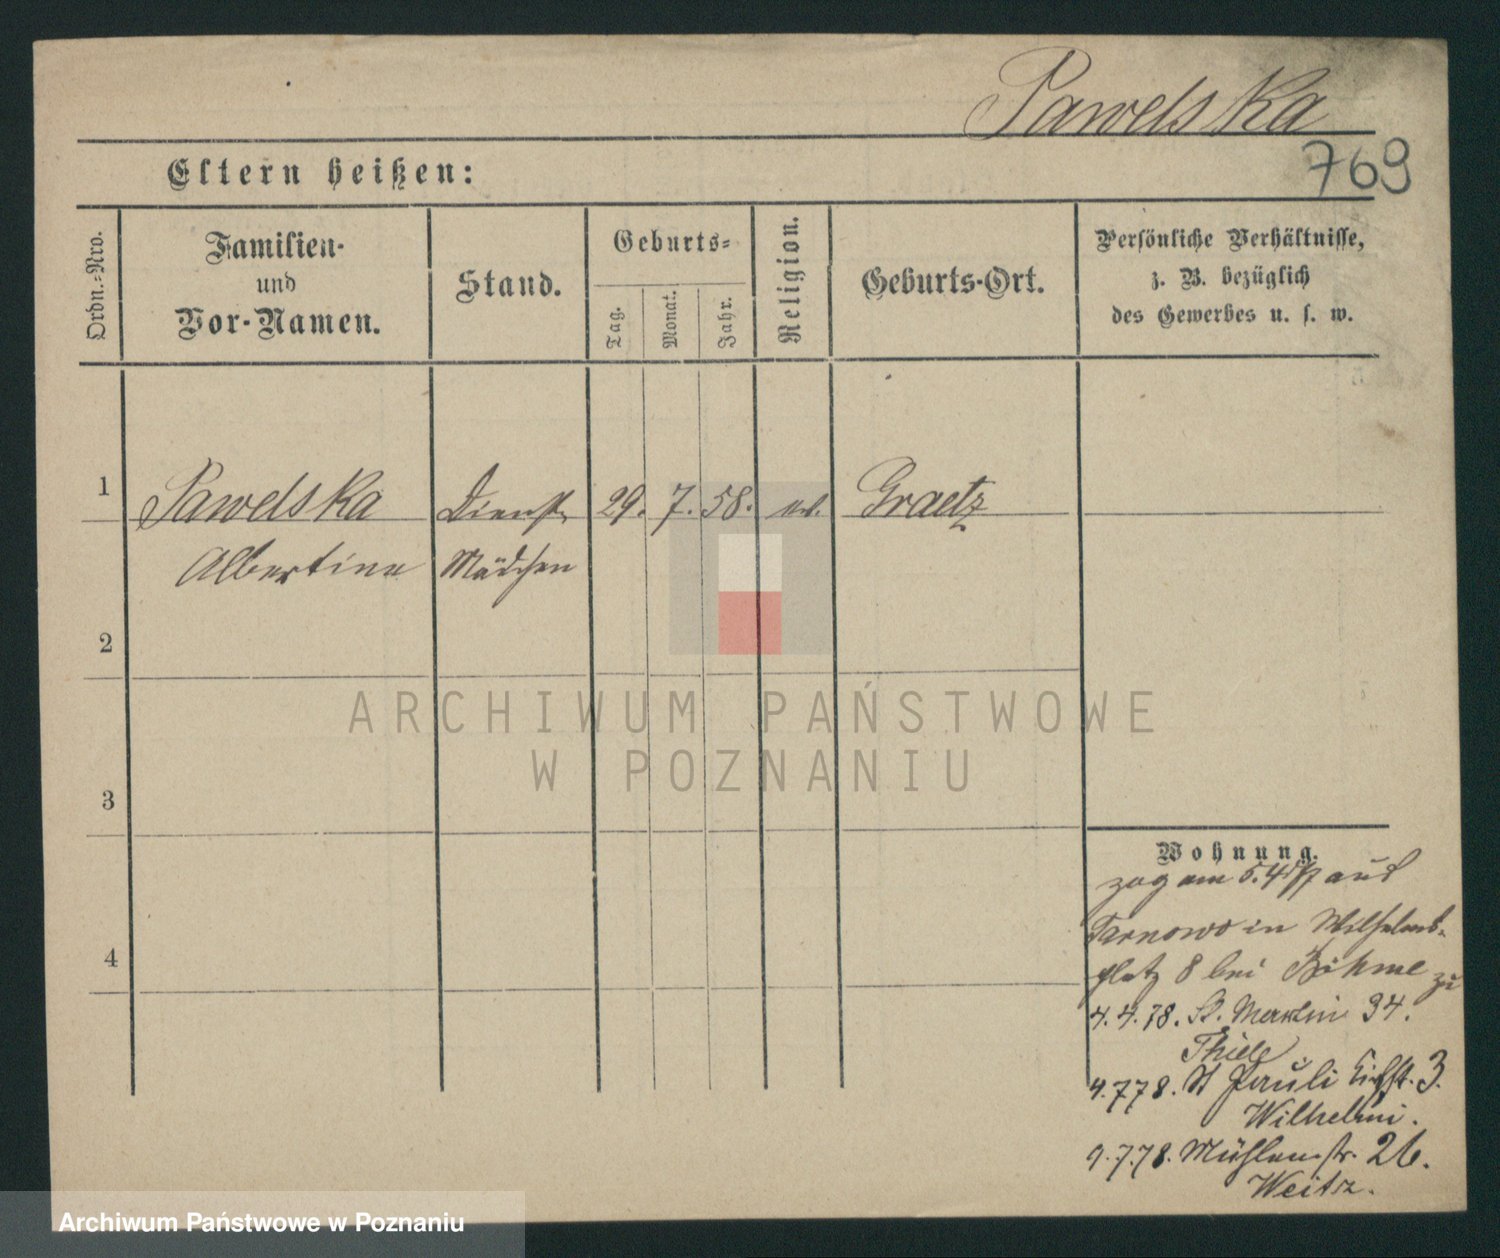 Pawelska
769
Eltern heißen:
Ordn.-Nro.
Familien-
und
Vor-Namen.
Stand.
Geburts-
Tag.
Monat.
Jahr.
Religion.
Geburts-Ort.
Persönliche Verhältnisse,
z. B. bezüglich
des Gewerbes u. s. w.
1
Pawelska
Dienst
29. 7. 58.
Graetz
Albertine
Mädchen
2
ARCHIWUM PAŃSTWOWE
W POZNANIU
3
Wohnung.
zog am 5. 4 aus
Tarnowo in Wilhelms-
platz 8 bei Böhme zu
4
4.4.78. St. Martin 34.
Thiele
4.7.78. St Pauli Kirchst. 3.
Wilhelmi.
9.7.78. Mühlenstr. 26.
Weitz.
Archiwum Państwowe w Poznaniu